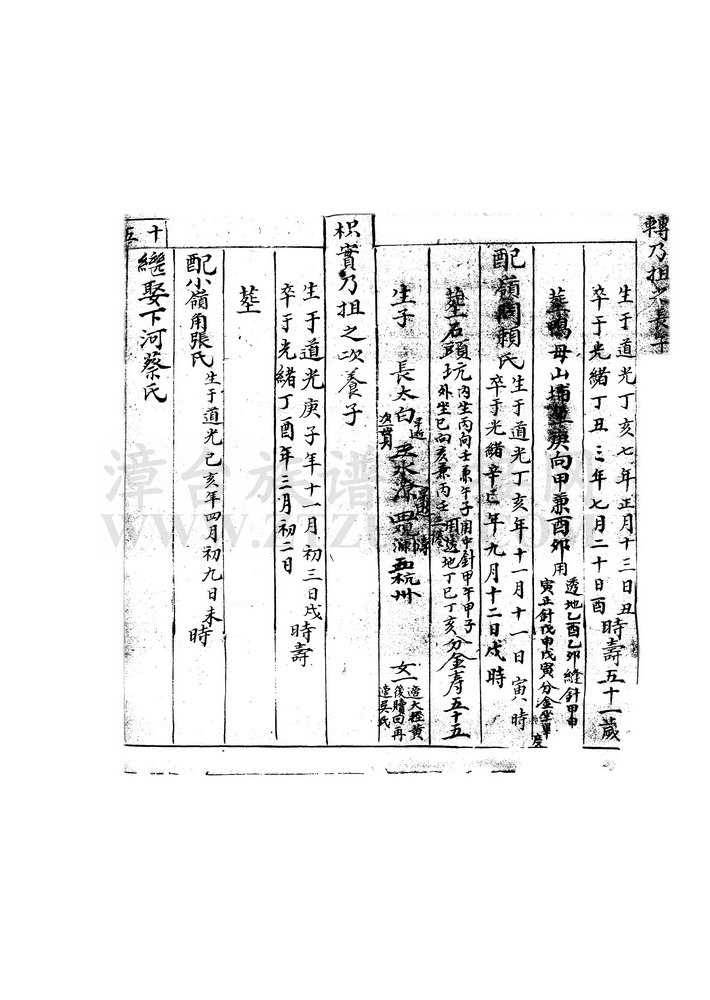 轉乃担之長子
生于道光丁亥七年正月十三日丑
卒于光緒丁丑三年七月二十日酉時壽五十一歲
葬鴨母山埔坐庚向甲兼酉卯用
透地乙酉乙卯縫針甲申
寅正針戊申戊寅分金坐畢度
配嶺頭賴氏
生于道光丁亥年十一月十一日寅時
卒于光緒辛巳年九月十二日戌時
塟石頭坑
內坐丙向壬兼午子用中針甲午甲子
外坐巳向亥兼丙壬用透地丁巳丁亥分金壽五十五
生子 長太白 次買 三永源 四 五杭州 女一
適大 黃
後贖回再
適吳氏
枳實乃担之次養子
生于道光庚子年十一月初三日戌時壽
卒于光緒丁酉年三月初二日
塟
配小嶺角張氏 生于道光己亥年四月初九日未時
繼娶下河蔡氏
十五
漳台族譜 网
WWW.ZTZUPU.COM